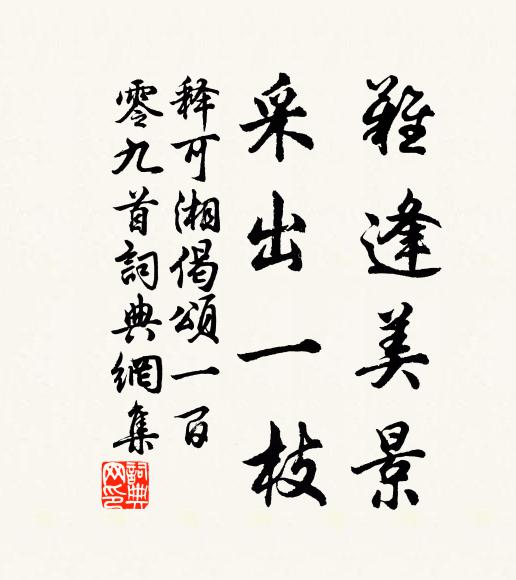 難逢美景
采出一枝
释可湘偈頌一百
零九首詞典網集
詞典
网印